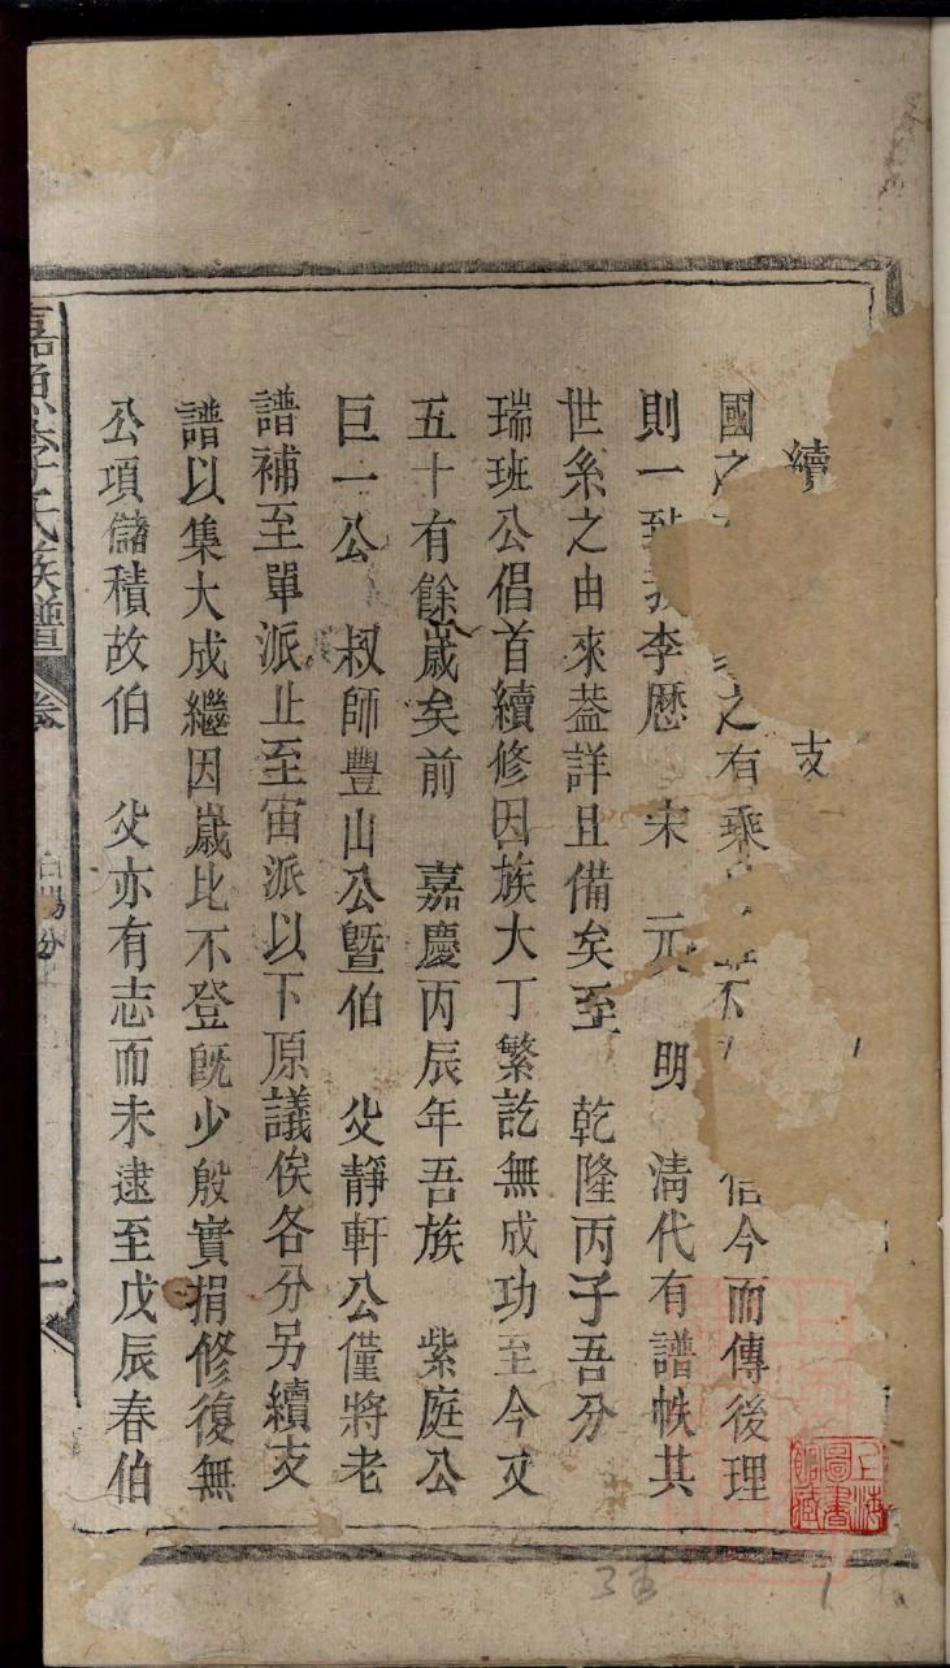 續 支
國之 之有乘 不 信今而傳後理
則一 李歷 宋 元 明 清代有譜帙其
世系之由來葢詳且備矣至 乾隆丙子吾分
瑞班公倡首續修因族大丁繁訖無成功至今又
五十有餘歲矣前 嘉慶丙辰年吾族 紫庭公
巨一公 叔師豐山公曁伯 父靜軒公僅將老
譜補至單派止至宙派以下原議俟各分另續支
譜以集大成繼因歲比不登旣少殷實捐修復無
公項儲積故伯 父亦有志而未逮至戊辰春伯
嘉魚李氏族譜 卷 分 一
上海圖書館藏
1